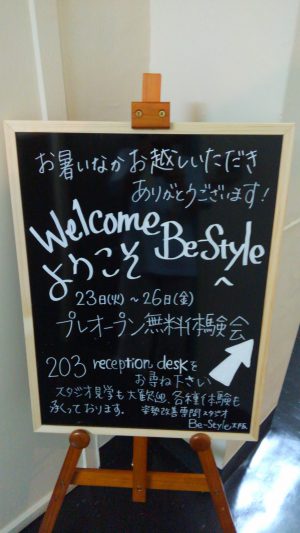 お暑いなかお越しいただき
ありがとうございます!
Welcome
ようこそ Be-Style へ
23日(火)~26日(金)
プレオープン無料体験会
203 reception deskを
お尋ね下さい
スタジオ見学も大歓迎、各種体験も
承っております。 姿勢改善専門スタジオ
Be-Style大阪